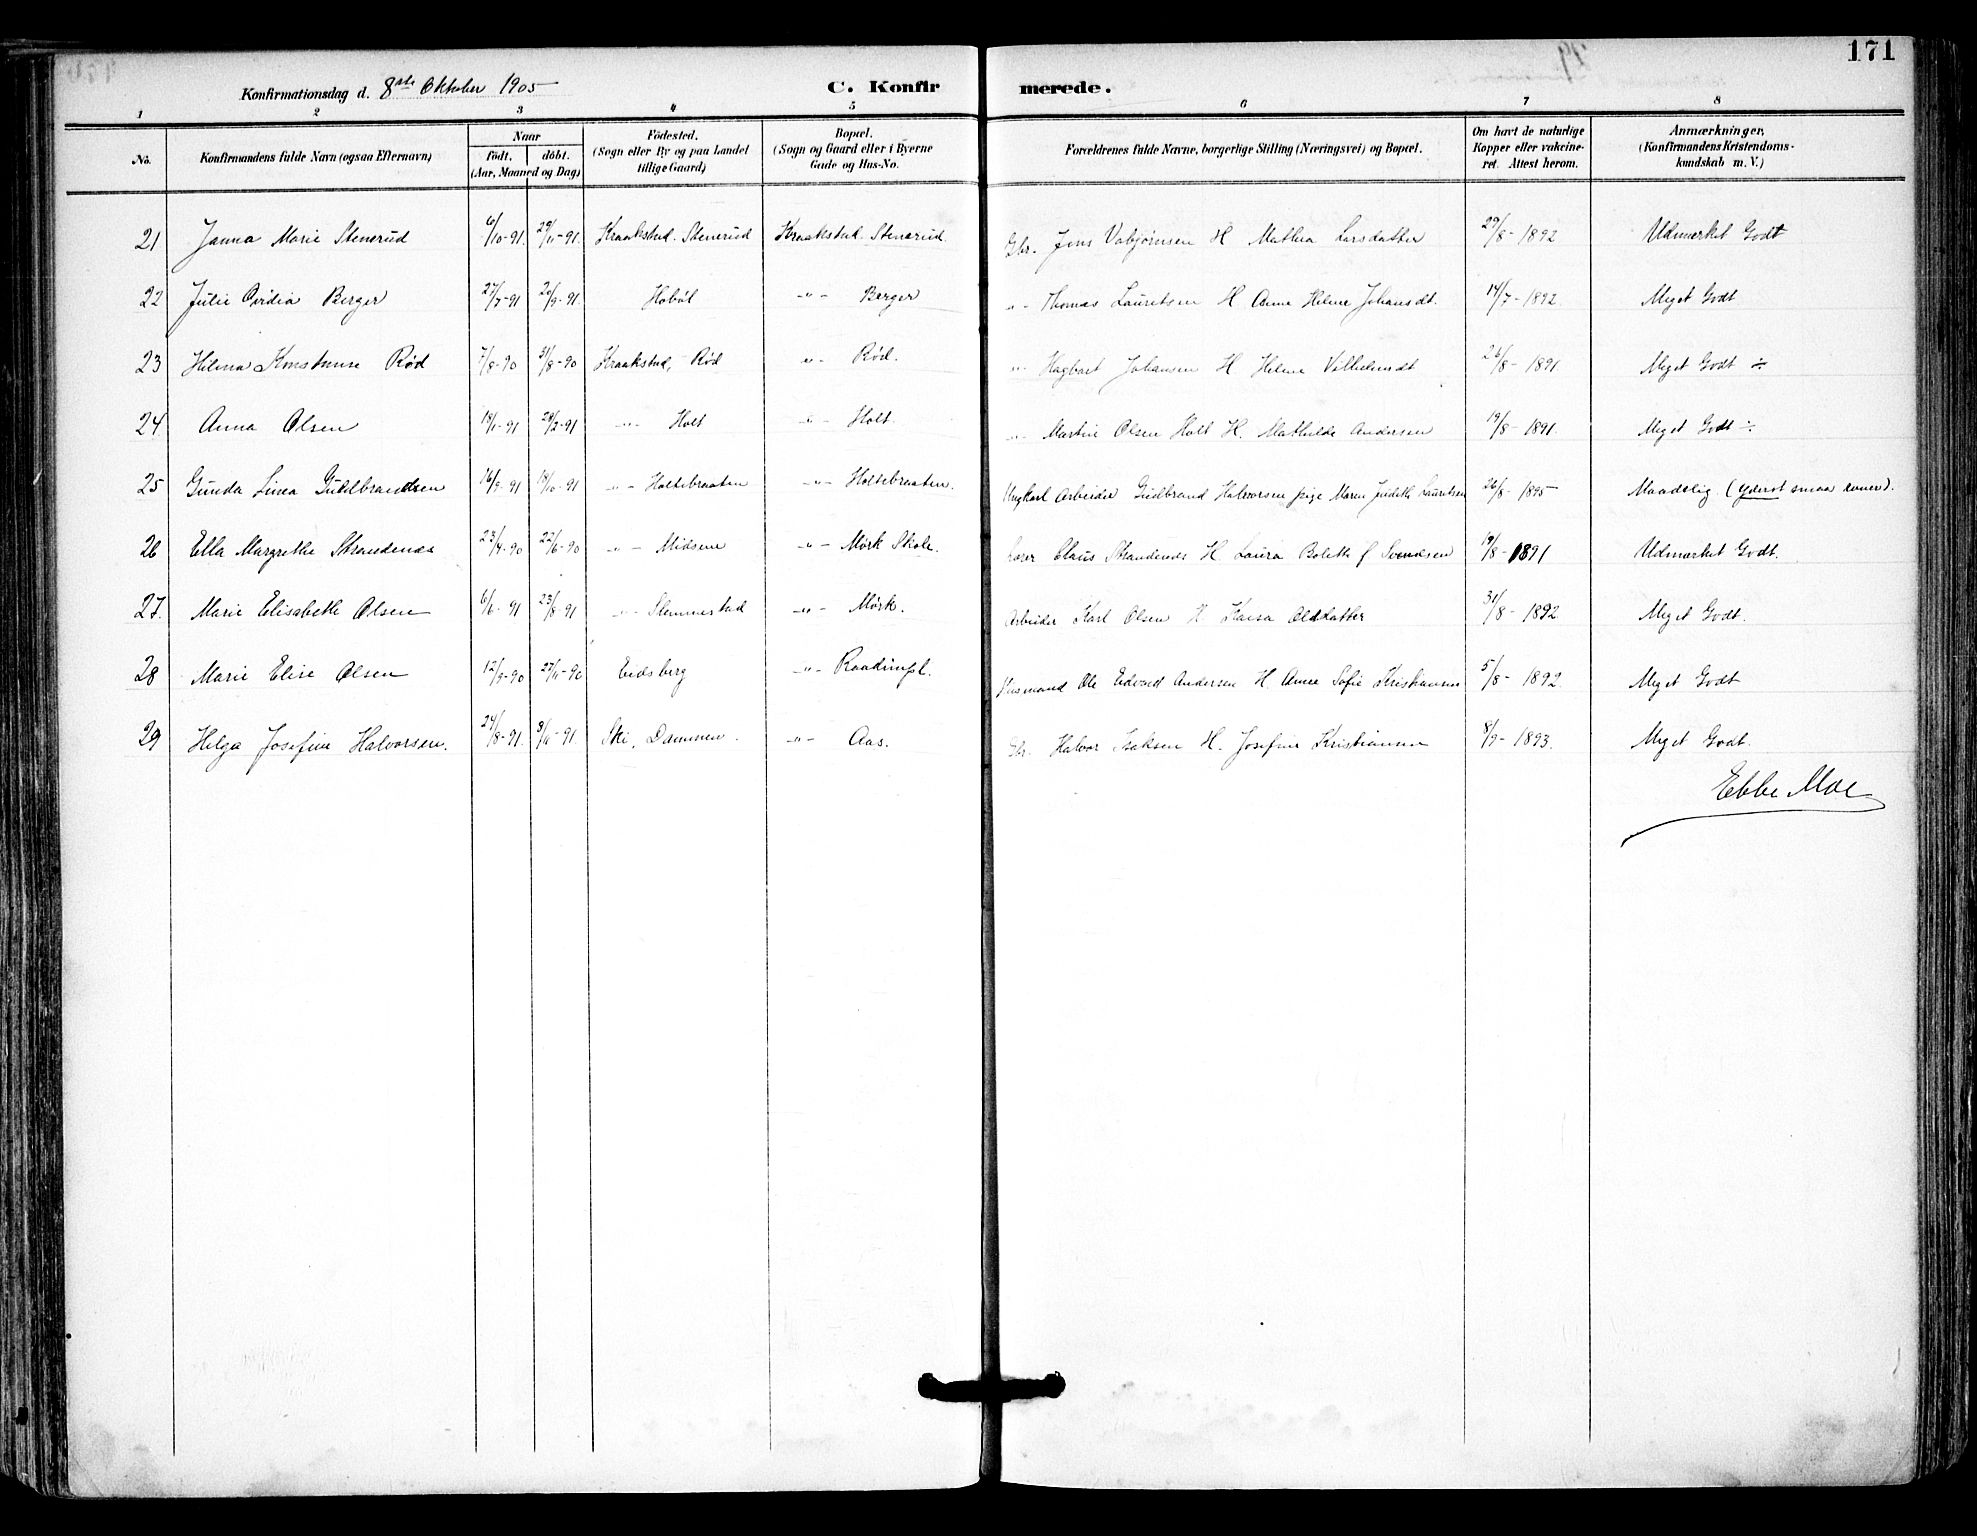 171
Konfirmationsdag d. 8de Oktober 1905 C. Konfir merede.
1 2 3 4 5 6 7 8
No. Konfirmandens fulde Navn (ogsaa Efternavn) Naar födt, döbt. (Aar, Maaned og Dag) Födested. (Sogn eller By og paa Landet tillige Gaard) Bopæl. (Sogn og Gaard eller i Byerne Gade og Hus-No. Forældrenes fulde Navne, borgerlige Stilling (Næringsvei) og Bopæl. Om havt de naturlige Kopper eller vakcineret. Attest herom. Anmærkninger, (Konfirmandens Kristendomskundskab m. V.)
21 Janna Marie Stenerud 6/10-91. 29/11-91. Kraakstad. Stenerud Kraakstad. Stenerud. Gbr. Jens H Mathea Larsdatter 29/8-1892 Udmærket Godt
22 Julie Ovidia Berger 27/7-91 20/9-91. Hobøl -"- Berger -"- Thomas Lauritsen H Anne Helene Johansdt. 14/7-1892. Meget Godt
23 Helena Rød 7/8-90 31/8-90 Kraakstad, Rød "- Rød. "- Hagbart Johansen H Helene Vilhelmsdt 26/8-1891. Meget Godt ÷
24 Anna Olsen 18/1-91 28/2-91 -"- Holt -"- Holt. -"- Martin Olsen Holt H. Mathilde Andersen 19/8-1891. Meget Godt ÷
25 Gunda Linea Guldbrandsen 16/9-91 18/10-91 -"- Holtebraaten -"- Holtebraaten. Ungkarl Arbeider Gudbrand Halvorsen pige Maren Judith Lauritsen 26/8-1895 Maadelig. (yderst smaa evner).
26 Ella Margrethe Strandenæs 23/4-90 22/6-90 -"- Midsem -"- Mørk Skole. Lærer Claus Strandenæs H. Laura Bolette f Svendsen 19/8-1891 Udmærket Godt.
27. Marie Elisabeth Olsen 6/6-91 23/8-91 -"- Slemmestad -"- Mørk. Arbeider Karl Olsen H Kaisa Olsdatter 31/8-1892 Meget Godt.
28 Marie Elise Olsen 12/9-90 27/11-90 Eidsberg -"- Husmand Ole Edvard Andersen H. Anne Sofie 5/8-1892. Meget Godt
29 Helga Josefine Halvorsen. 24/8-91. 8/11-91. Ski, Dammen. -"- Aas. Gbr. Halvor Isaksen H. Josefine Kristianna 8/9-1893. Meget Godt.
Ebbe Moe